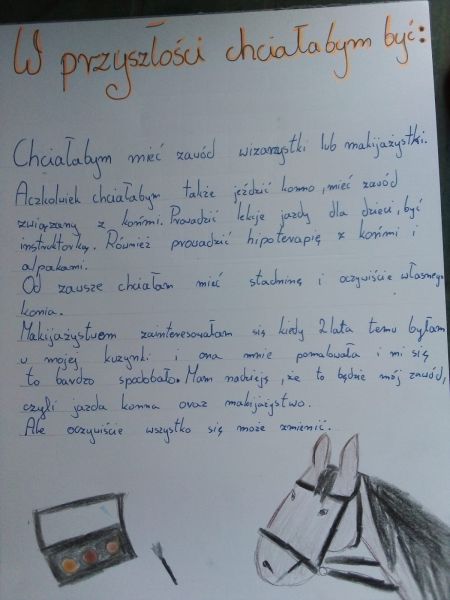 W przyszłości chciałabym być:
Chciałabym mieć zawód wizarzystki lub makijażystki.
Aczkolwiek chciałabym także jeździć konno, mieć zawód
związany z końmi. Prowadzić lekcje jazdy dla dzieci, być
instruktorką. Również prowadzić hipoterapię z końmi i
alpakami.
Od zawsze chciałam mieć stadninę i oczywiście własnego
konia.
Makijażystwem zainteresowałam się kiedy 2 lata temu byłam
u mojej kuzynki i ona mnie pomalowała i mi się
to bardzo spodobało. Mam nadzieję, że to będzie mój zawód,
czyli jazda konna oraz makijażystwo.
Ale oczywiście wszystko się może zmienić.